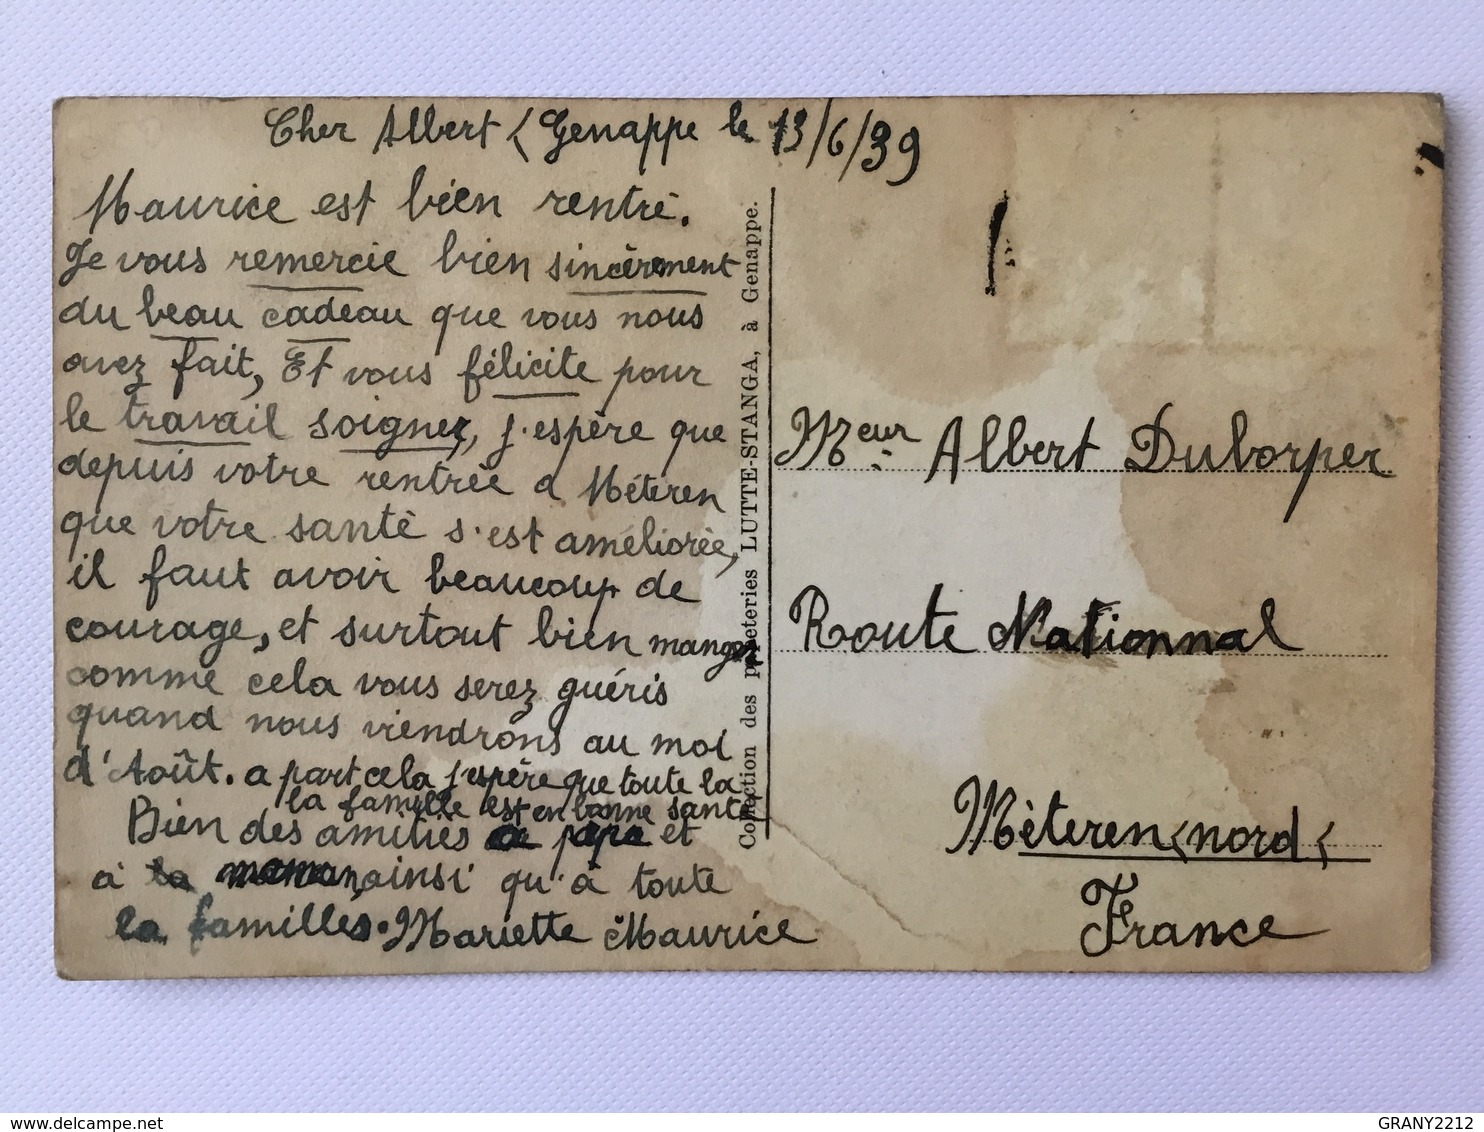 Cher Albert ( Genappe le 13/6/39
Maurice est bien rentré.
Je vous remercie bien sincèrement
du beau cadeau que vous nous
avez fait, Et vous félicite pour
le travail soignez, j'espère que
depuis votre rentrée a Méteren
que votre santé s'est améliorée,
il faut avoir beaucoup de
courage, et surtout bien manger
comme cela vous serez guéris
quand nous viendrons au moi
d'Août. a part cela j'espère que toute la
la famille est en bonne santé
Bien des amitiés de papa et
à la maman, ainsi qu'à toute
la familles. Mariette Maurice
Collection des papeteries LUTTE-STANGA, à Genappe.
Meur Albert Duborper
Route Nationnal
Mèteren (nord)
France
GRANY2212